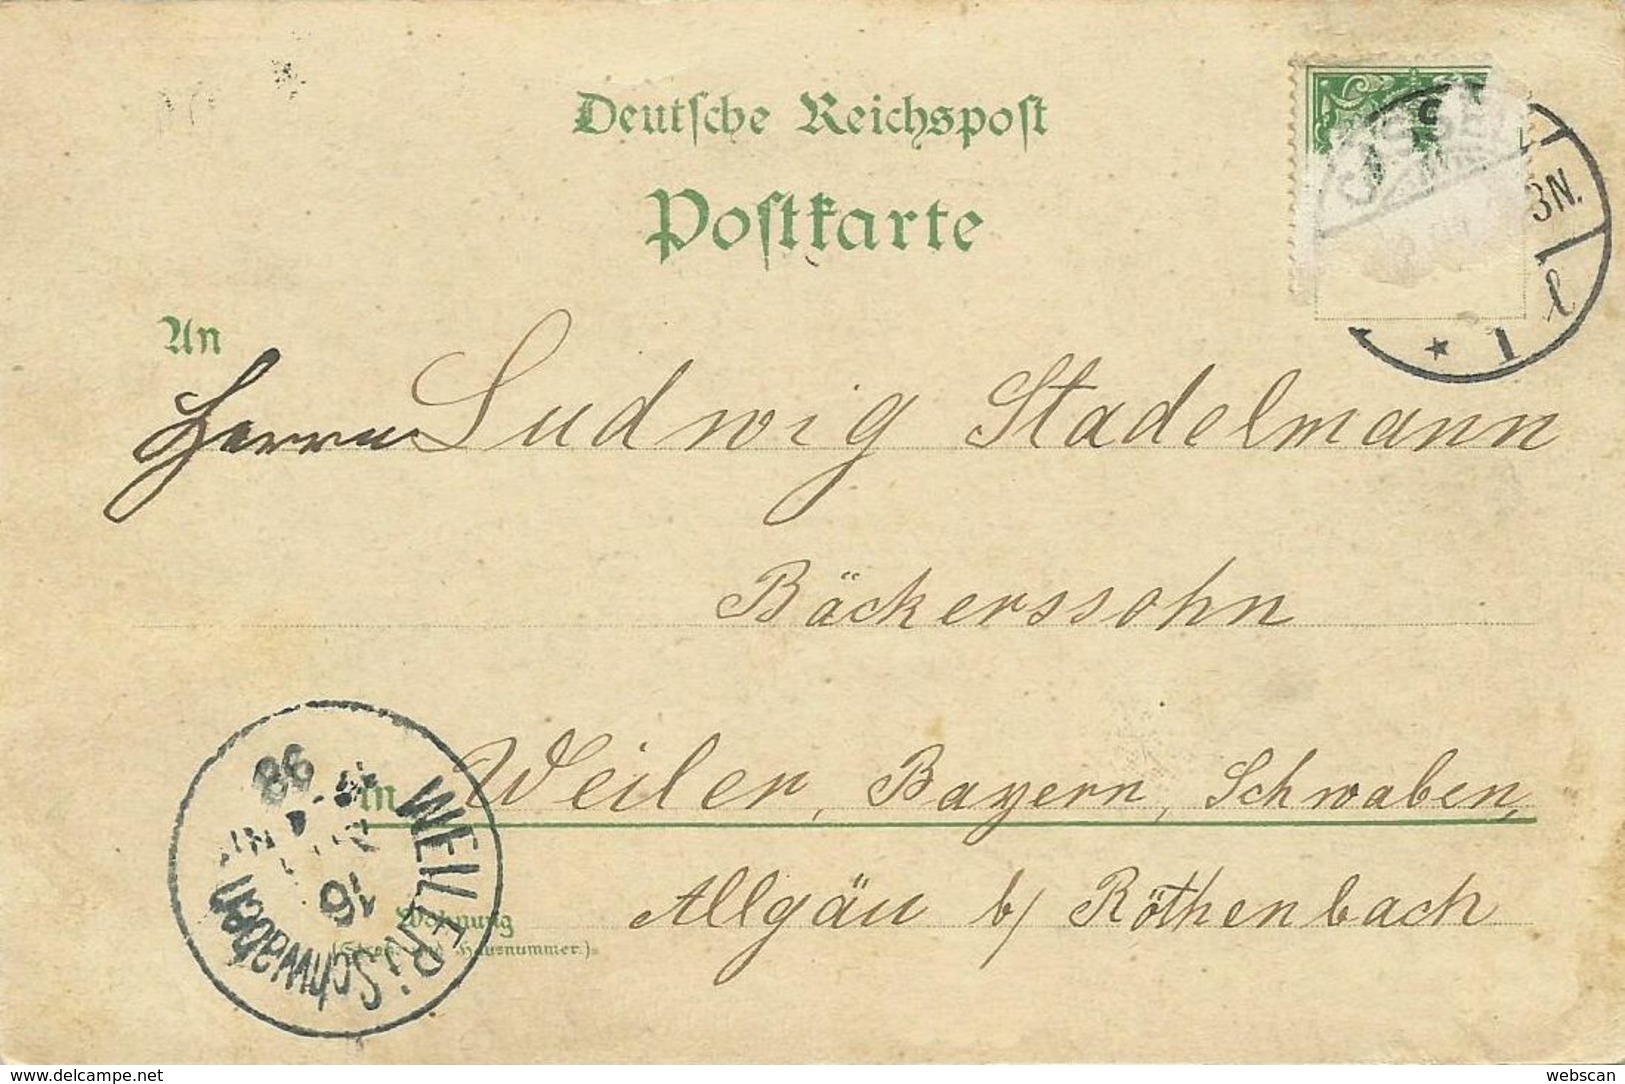 Deutsche Reichspost
Postkarte
CASSEL
3N.
* 1 l
An
Herrn Ludwig Stadelmann
Bäckerssohn
in Weiler, Bayern, Schwaben,
Allgäu b/ Röthenbach
Wohnung
(Straße und Hausnummer.)
WEILER i/Schwaben
16
98
www.delcampe.net
webscan